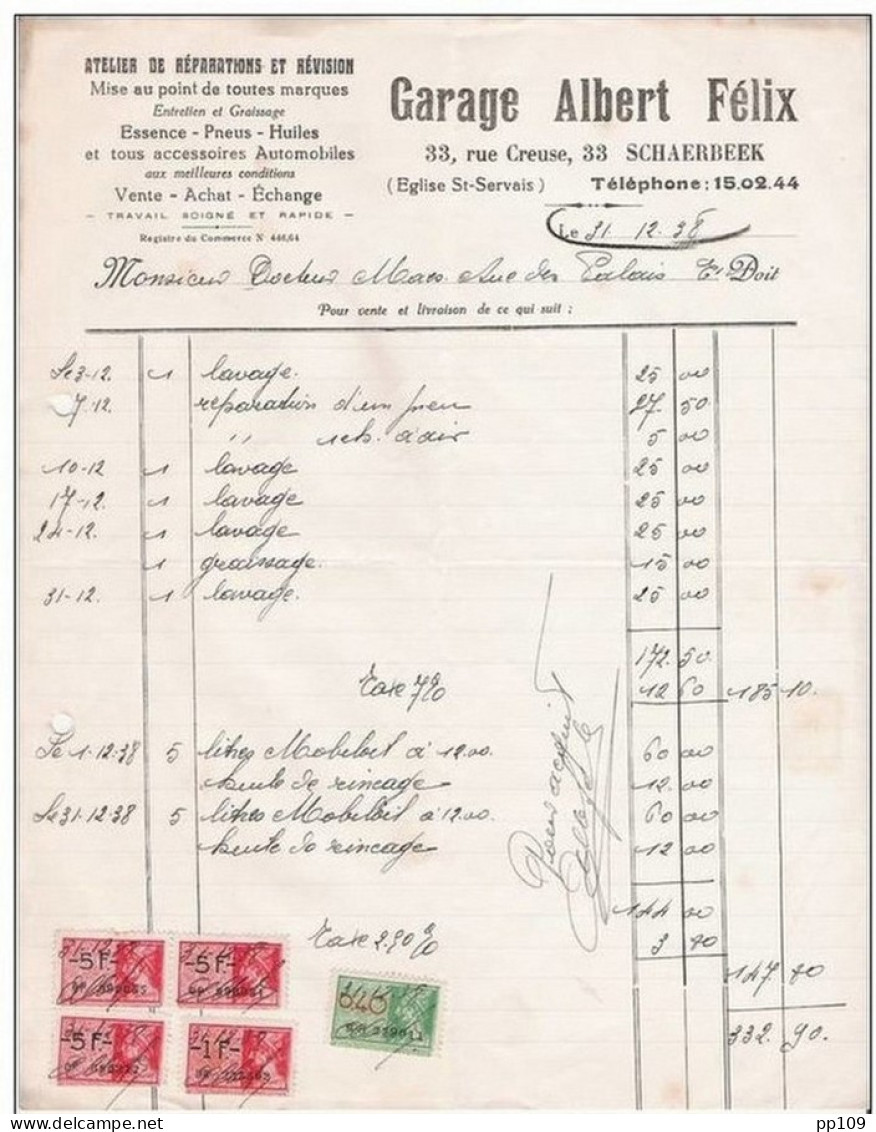 ATELIER DE RÉPARATIONS ET RÉVISION
Mise au point de toutes marques
Entretien et Graissage
Essence - Pneus - Huiles
et tous accessoires Automobiles
aux meilleures conditions
Vente - Achat - Échange
- TRAVAIL SOIGNÉ ET RAPIDE -
Registre du Commerce N° 446,64
Garage Albert Félix
33, rue Creuse, 33 SCHAERBEEK
(Eglise St-Servais) Téléphone: 15.02.44
Le 31. 12. 38
Monsieur Docteur Maes. Aue des Palais Et Doit
Pour vente et livraison de ce qui suit :
Le 3-12. 1 lavage. 25 00
7.12. réparation d'un pneu 27. 50
" ch. à air 5 00
10-12 1 lavage 25 00
17-12. 1 lavage 25 00
24-12. 1 lavage 25 00
1 graissage. 15 00
31-12. 1 lavage. 25 00
172. 50.
Taxe 7% 12 60 185 10.
Le 1.12.38 5 litres Mobiloil à 12.00. 60 00
huile de rincage 12.00
Le 31.12.38 5 litres Mobiloil à 12.00. 60 00
huile de rincage 12 00
144 00
Taxe 2.90% 3 80
147 80
332. 90.
Pour acquit
-5 F-
-5 F-
-5 F-
-1 F-
pp109